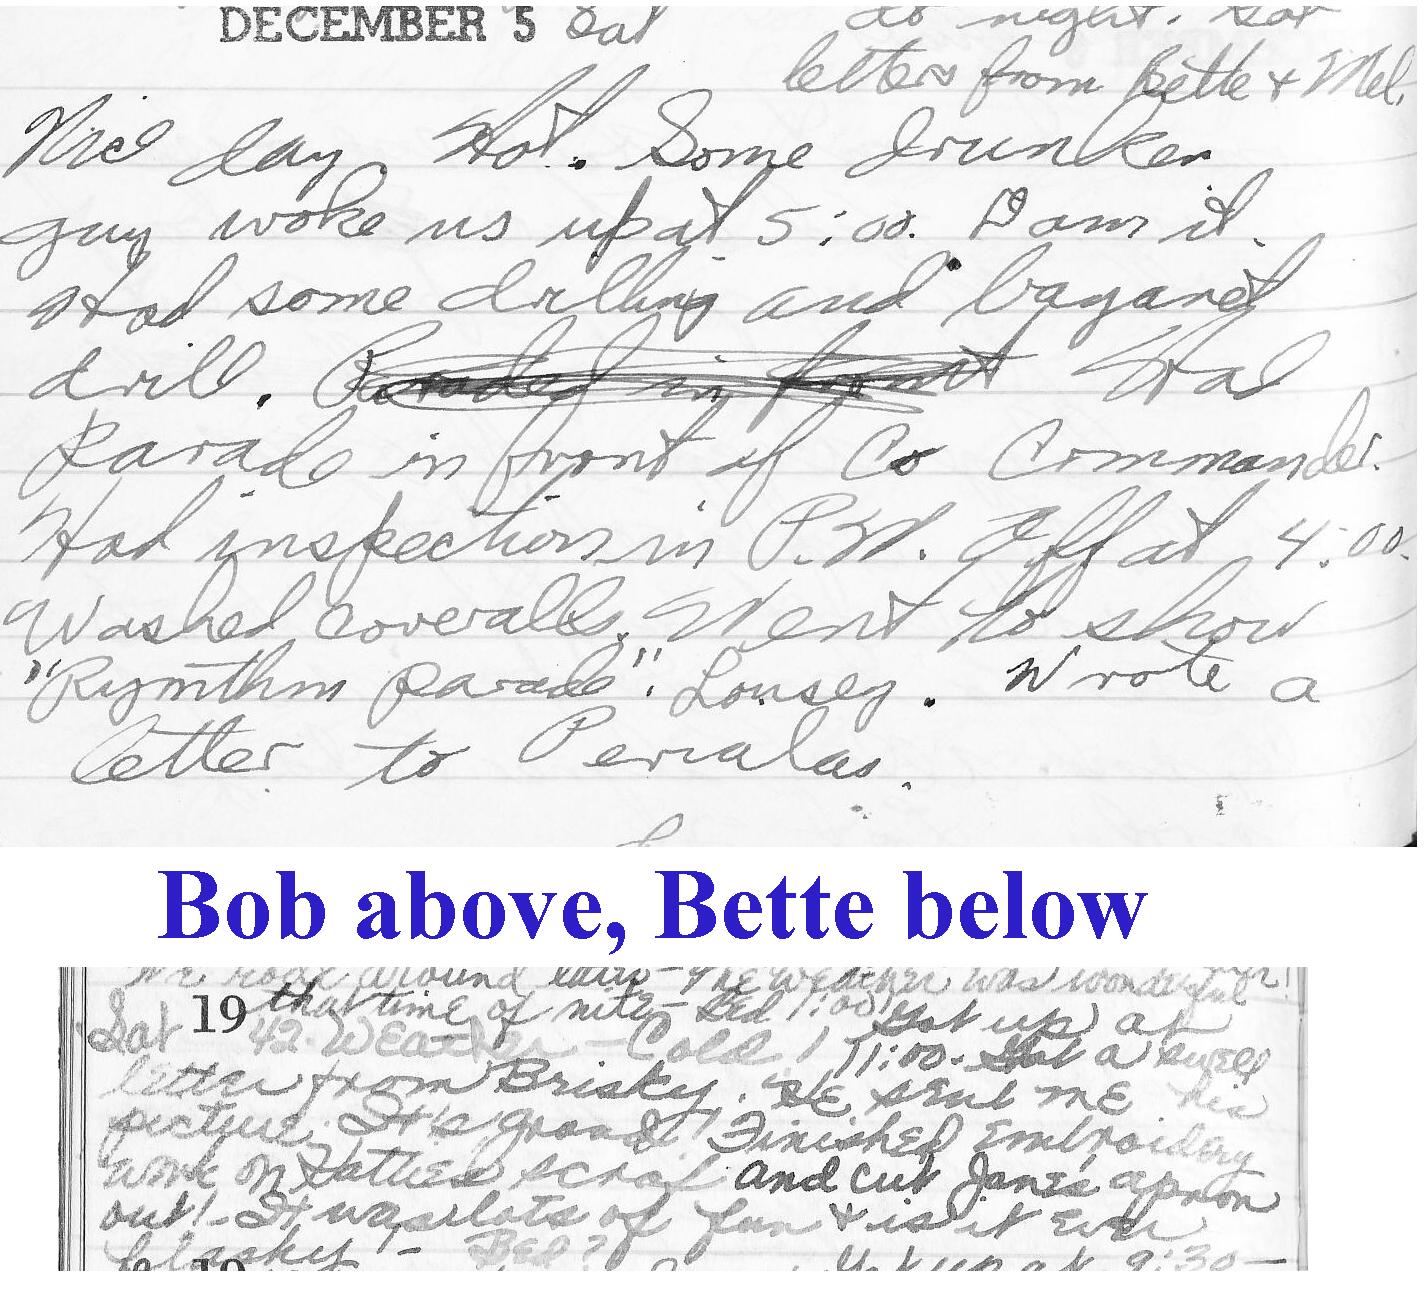 DECEMBER 5 Sat
to night. Got
letters from Bette & Mel.
Nice day. Hot. Some drunken
guy woke us up at 5:00. Dam it.
Had some drilling and bayanet
drill. Paraded in front Had
parade in front of Co Commander.
Had inspection in P.M. Off at 4:00.
Washed coveralls. Went to show
"Rymthm parade". Lousey. Wrote a
letter to
Bob above, Bette below
rode around the weather was wonderful
19 that time of nite - Bed 1:00!
Sat 42. Weather - Cold! Got up at
11:00. Got a swell
letter from Brisky. He sent me his
picture. It's grand! Finished embroidery
work on Hattie's scarf and cut Jane's apron
out! - It was lots of fun & is it ever
flashy! - Bed?
19 Got up at 9:30 -